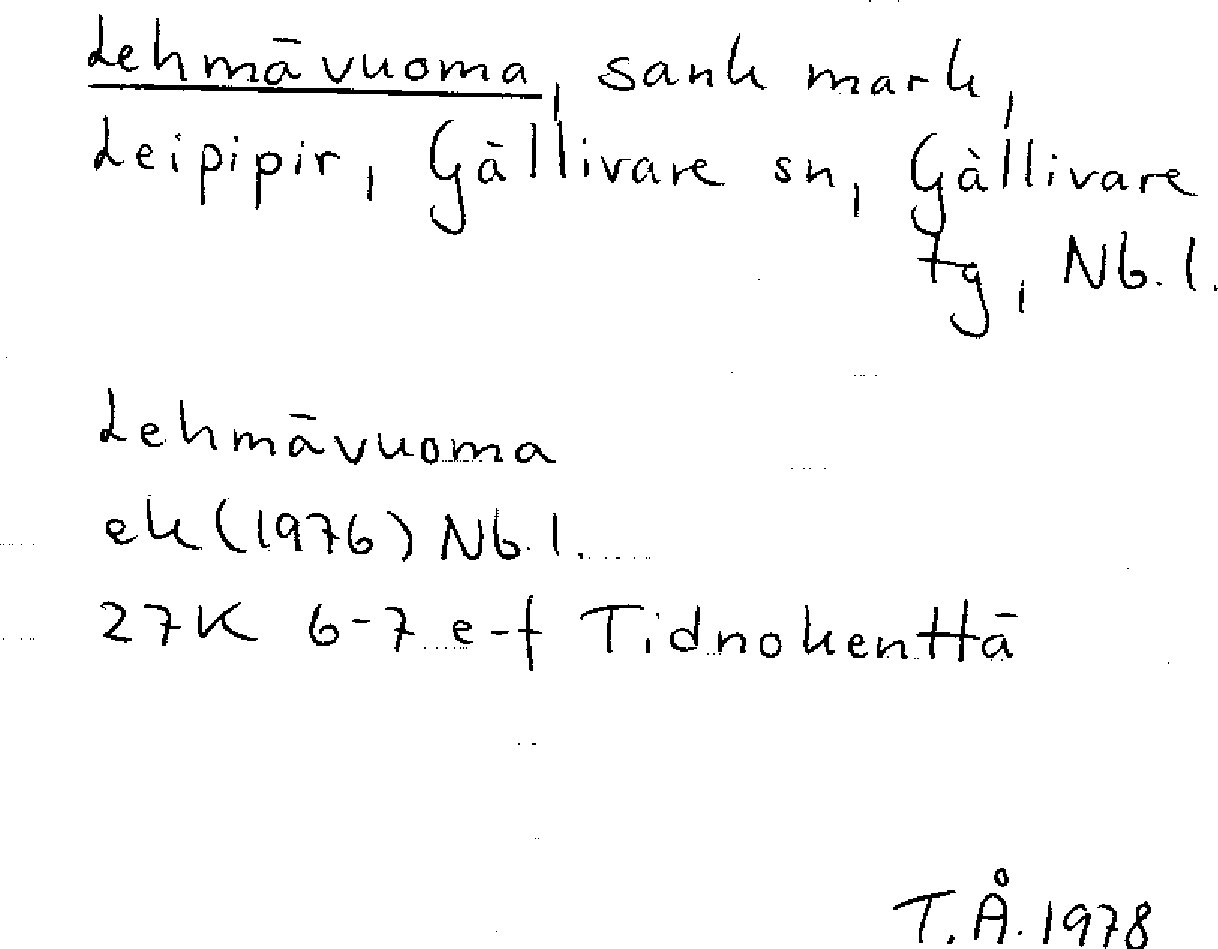 Lehmävuoma, sank mark,
Leipipir, Gällivare sn, Gällivare
tg, Nb. l.
Lehmävuoma
ek (1976) Nb. l.
27K 6-7 e-f Tidnokenttä
T.Å. 1978